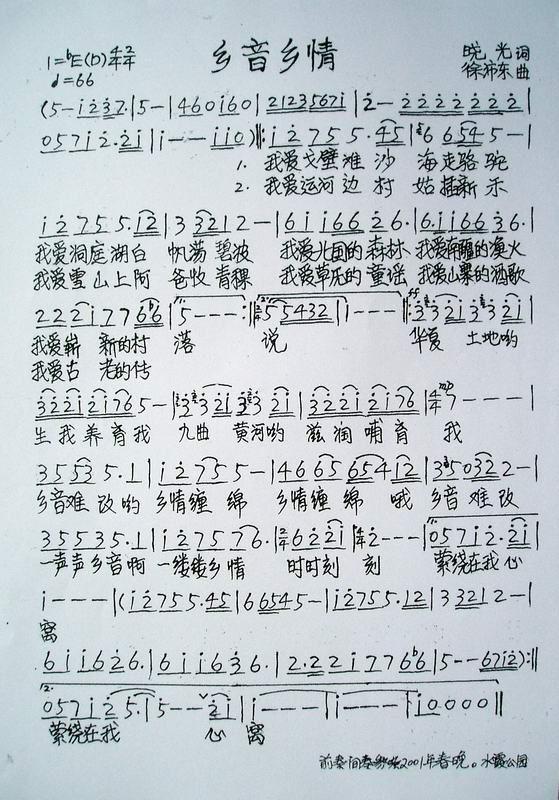 乡音乡情
1=♭E(D) 4/4 2/4
晓光词
♩=66
徐沛东曲
(5-i̇2̇3̇7̇|5-|460i̇60|2123567i̇|2̇-2̇2̇2̇2̇2̇2̇2̇|
057i̇2̇·2̇i̇|i̇--i̇i̇0):‖i̇2̇755·45|66545-|
1. 我爱戈壁滩沙 海走骆驼
2. 我爱运河边村 姑插新禾
i̇2̇755·i̇2̇|33212-|6i̇i̇662̇6·|6·i̇i̇663̇6·|
我爱洞庭湖白 帆荡碧波 我爱北国的森林 我爱南疆的渔火
我爱雪山上阿 爸牧青稞 我爱草原的童谣 我爱山寨的酒歌
222i̇7766|5---:‖55432|i̇---|3̇3̇2̇i̇3̇3̇2̇i̇|
我爱崭 新的村 落 说 华夏 土地哟
我爱古 老的传
3̇2̇2̇i̇2̇i̇765-|3̇3̇2̇i̇3̇3̇2̇i̇|3̇2̇2̇i̇2̇i̇76|4/4 7---|
生我养育我 九曲 黄河哟 滋润哺育 我
35535·1|i̇2̇755-|4665654i̇2̇|3503̇2̇2̇-|
乡音难改哟 乡情缠绵 乡情缠绵 哦 乡音难改
355535·1|i̇27576·|2/4 62̇2̇i̇|4/4 2̇---|057i̇2̇·2̇i̇|
一声声乡音啊 一缕缕乡情 时时刻 刻 萦绕在我心
i̇---|(i̇2̇755·45|66545-|i̇2̇755·12|33212-|
窝
6i̇i̇62̇6·|6i̇i̇63̇6·|2·22i̇7766|5--67i̇2̇):‖
2.
057i̇2̇5·|5--2̇i̇|i̇---|i̇---|i̇0000‖
萦绕在我 心 窝
2001年春晚。水霞公园